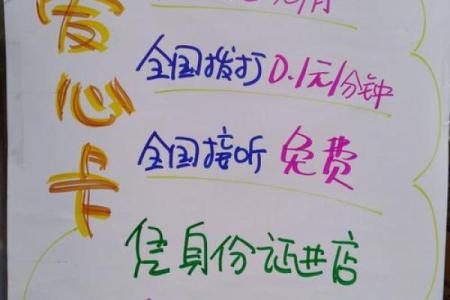 爱心卡
全国拨打0.1元/分钟
全国接听 免费
凭身份证进店